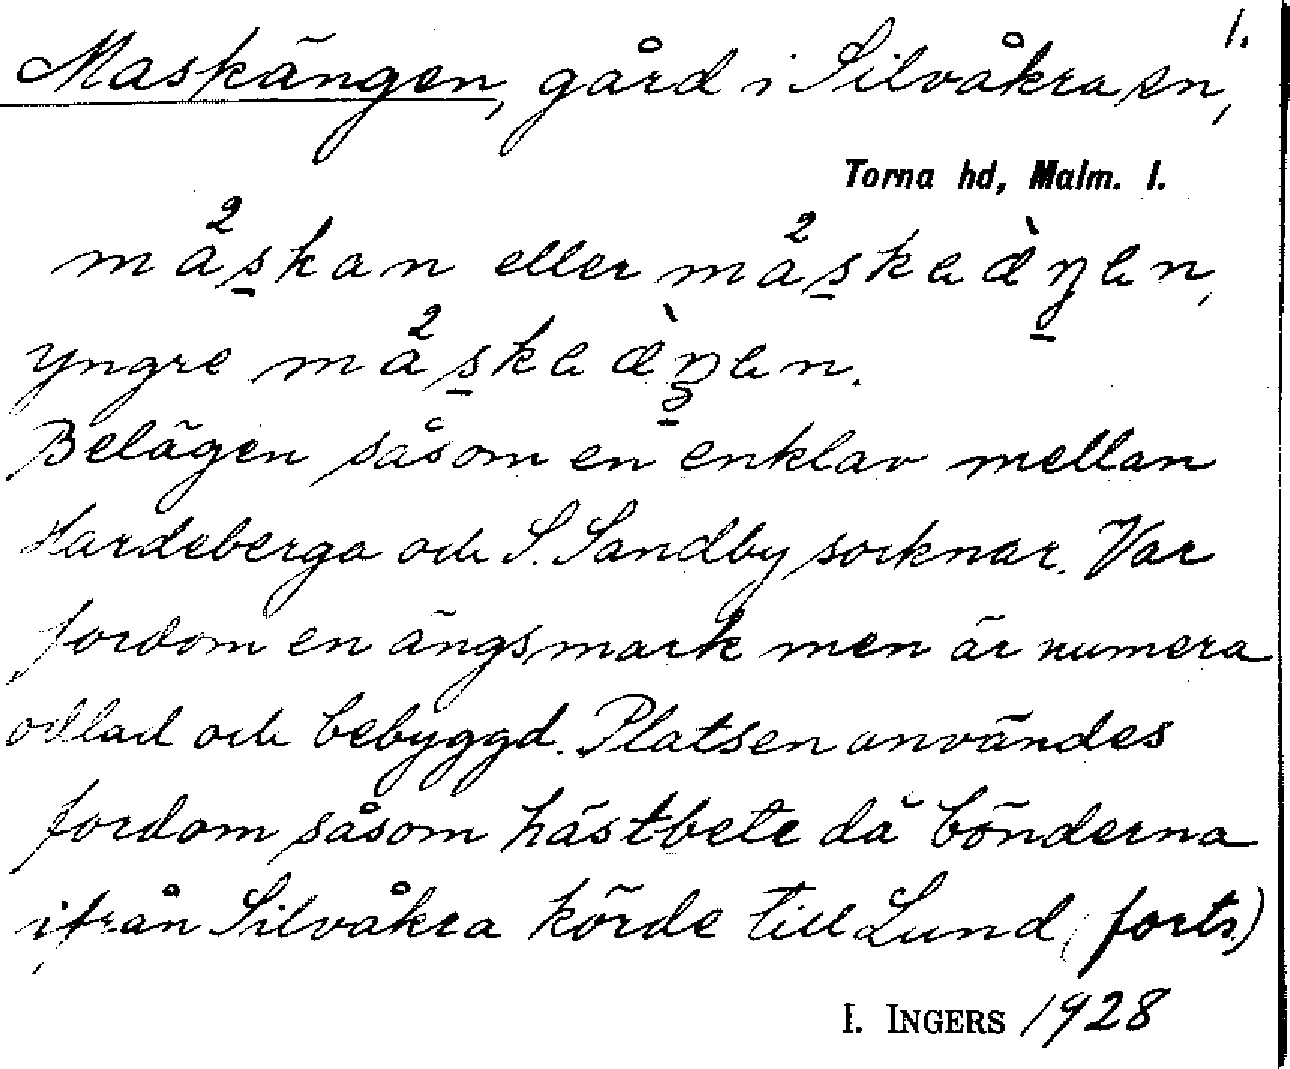 1.
Maskängen, gård i Silvåkra sn,
Torna hd, Malm. l.
må²skan eller må²skaæ̀ŋan,
yngre må²skaæ̀ŋan.
Belägen såsom en enklav mellan
Hardeberga och S. Sandby socknar. Var
fordom en ängsmark men är numera
odlad och bebyggd. Platsen användes
fordom såsom hästbete då bönderna
ifrån Silvåkra körde till Lund (forts)
I. INGERS 1928